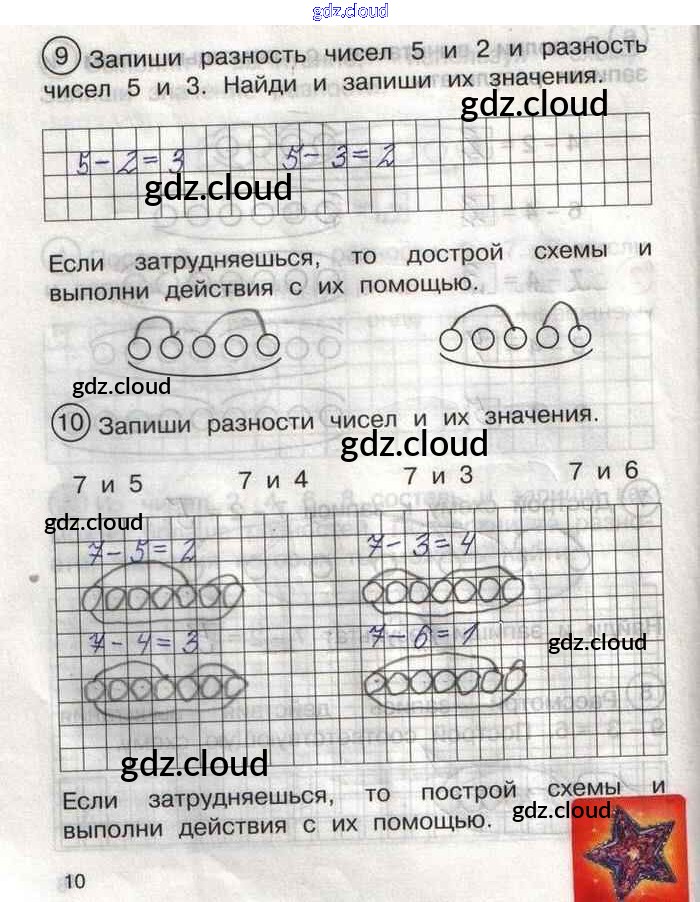 gdz.cloud
9 Запиши разность чисел 5 и 2 и разность
чисел 5 и 3. Найди и запиши их значения.
gdz.cloud
5-2=3 5-3=2
gdz.cloud
Если затрудняешься, то дострой схемы и
выполни действия с их помощью.
gdz.cloud
10 Запиши разности чисел и их значения.
gdz.cloud
7 и 5 7 и 4 7 и 3 7 и 6
gdz.cloud
7-5=2 7-3=4
7-4=3 7-6=1
gdz.cloud
gdz.cloud
Если затрудняешься, то построй схемы и
gdz.cloud
выполни действия с их помощью.
10